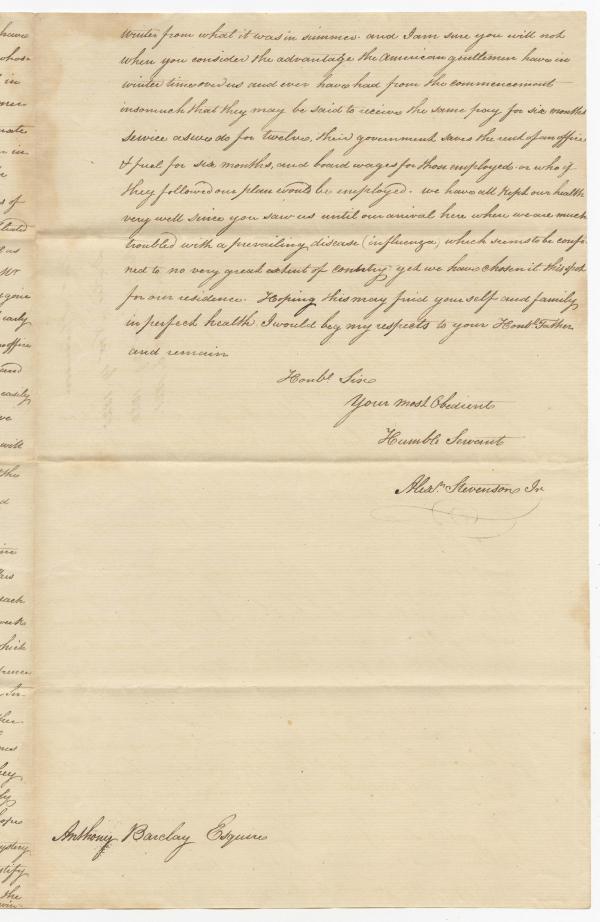 winter from what it was in summer. and I am sure you will not
when you consider the advantage the American gentlemen have in
winter time over us and ever have had from the commencement
insomuch that they may be said to receive the same pay for six months
service as we do for twelve, their government saves the rent of an office
& fuel for six months, and board wages for those employed or who if
they followed our plan would be employed. we have all kept our health
very well since you saw us until our arrival here where we are much
troubled with a prevailing disease (influenza) which seems to be confi
ned to no very great extent of country yet we have chosen it this spot
for our residence. Hoping this may find yourself and family
in perfect health I would beg my respects to your Honble Father
and remain
Honbl Sir
Your most Obedient
Humble Servant
Alexr Stevenson Jr
Anthony Barclay Esquire
have
whose
in
in
s of
as
Mr
early
office
and
easily
ve
will
the
d
each
week
which
hey
hopes
ystery
stify
the
win-